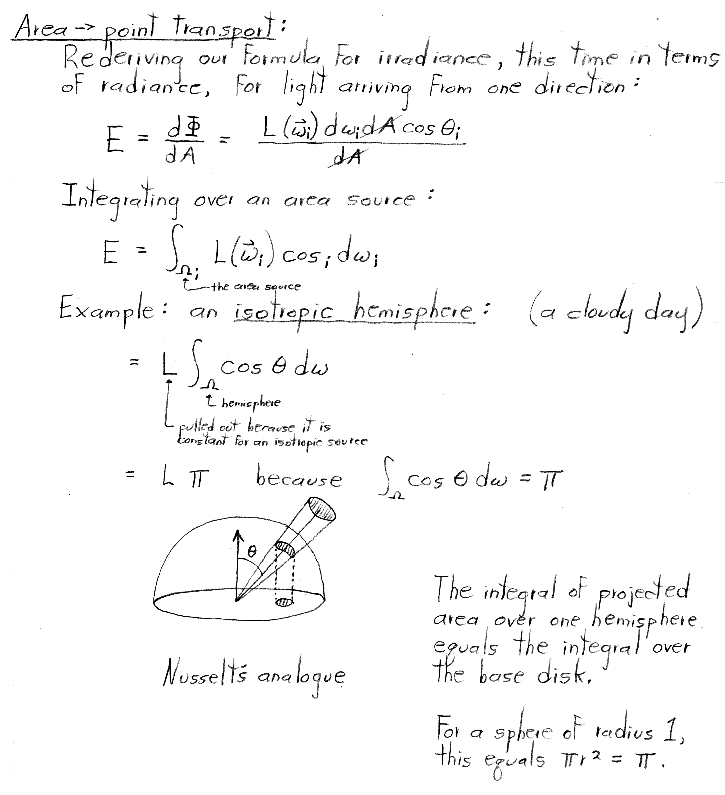 Area → point transport:
Rederiving our formula for irradiance, this time in terms
of radiance, for light arriving from one direction:
E = dΦ/dA = L(ω⃗ᵢ) dωᵢ dA cos θᵢ / dA
Integrating over an area source:
E = ∫Ωᵢ L(ω⃗ᵢ) cosᵢ dωᵢ
the area source
Example: an isotropic hemisphere: (a cloudy day)
= L ∫Ω cos θ dω
hemisphere
pulled out because it is
constant for an isotropic source
= L π because ∫Ω cos θ dω = π
θ
Nusselt's analogue
The integral of projected
area over one hemisphere
equals the integral over
the base disk.
For a sphere of radius 1,
this equals πr² = π.